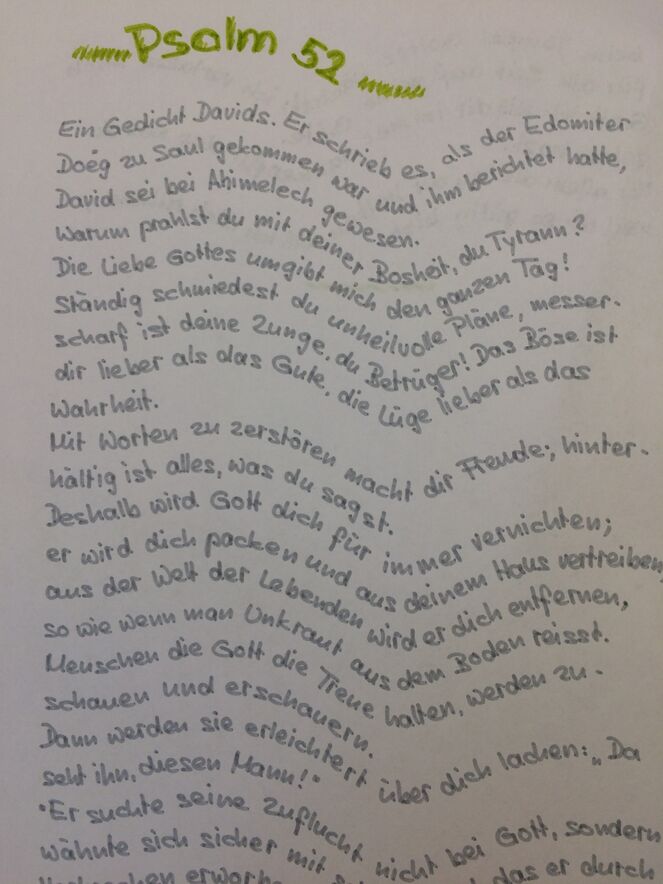 Psalm 52
Ein Gedicht Davids. Er schrieb es, als der Edomiter
Doëg zu Saul gekommen war und ihm berichtet hatte,
David sei bei Ahimelech gewesen.
Warum prahlst du mit deiner Bosheit, du Tyrann?
Die Liebe Gottes umgibt mich den ganzen Tag!
Ständig schmiedest du unheilvolle Pläne, messer-
scharf ist deine Zunge, du Betrüger! Das Böse ist
dir lieber als das Gute, die Lüge lieber als das
Wahrheit.
Mit Worten zu zerstören macht dir Freude; hinter-
hältig ist alles, was du sagst.
Deshalb wird Gott dich für immer vernichten;
er wird dich packen und aus deinem Haus vertreiben,
aus der Welt der Lebenden wird er dich entfernen,
so wie wenn man Unkraut aus dem Boden reisst.
Menschen die Gott die Treue halten, werden zu-
schauen und erschauern.
Dann werden sie erleichtert über dich lachen: „Da
seht ihn, diesen Mann!"
"Er suchte seine Zuflucht nicht bei Gott, sondern
wähnte sich sicher mit das er durch